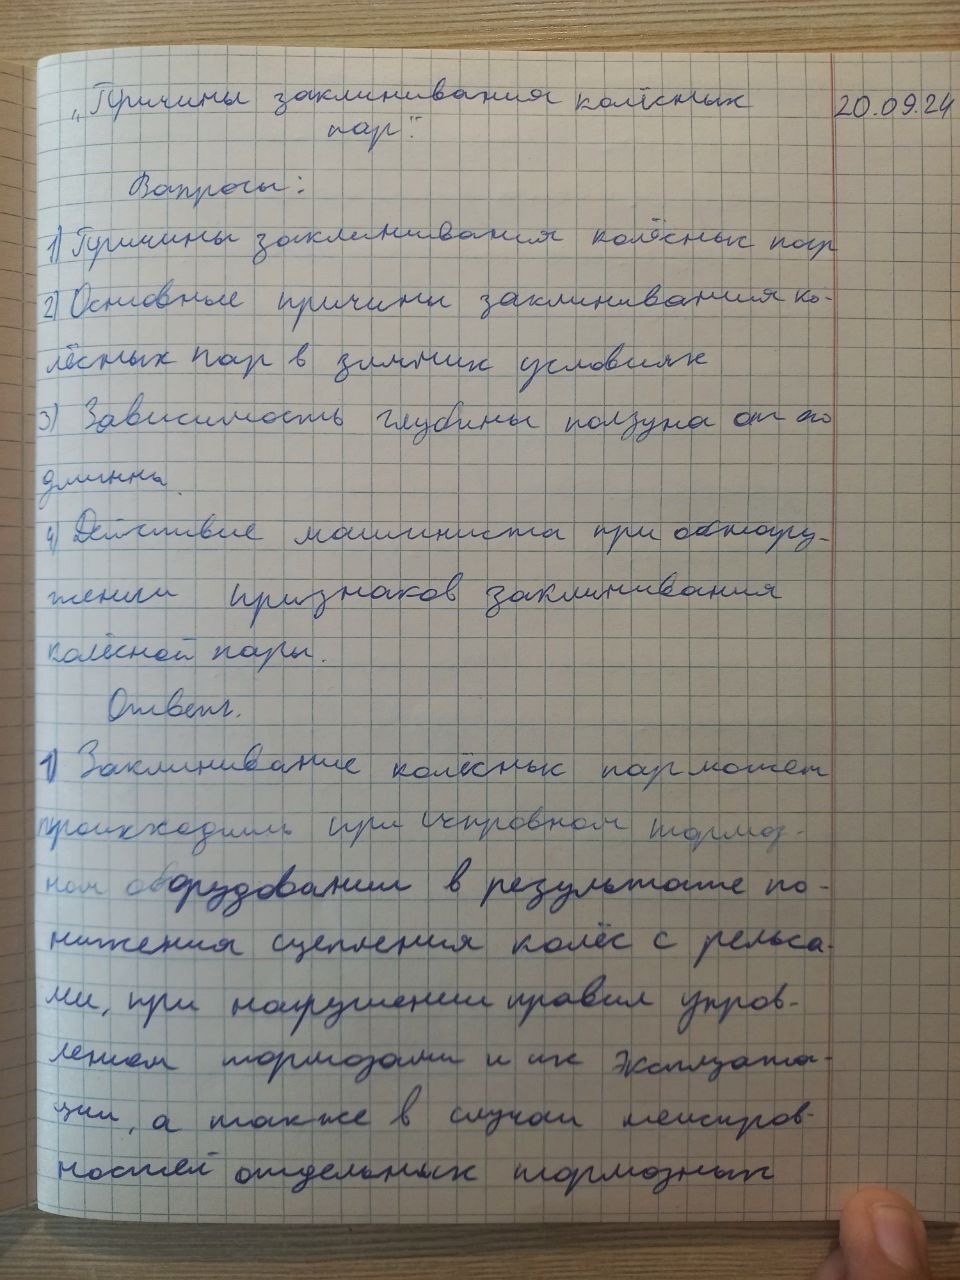 „Причины заклинивания колёсных
20.09.24
пар".
Вапросы:
1) Причины заклинивания колёсных пар
2) Основные причины заклинивания ко-
лёсных пар в зимних условиях
3) Зависимость глубины ползуна от его
длинны.
4) Действие машиниста при обнару-
жении признаков заклинивания
колёсной пары.
Ответ.
1) Заклинивание колёсных пар может
происходить при исправном тормоз-
ном оборудовании в результате по-
нижения сцепления колёс с рельса-
ми, при нарушении правил управ-
лением тормозами и их
ции, а также в случаи неисправ-
ностей отдельных тормозных